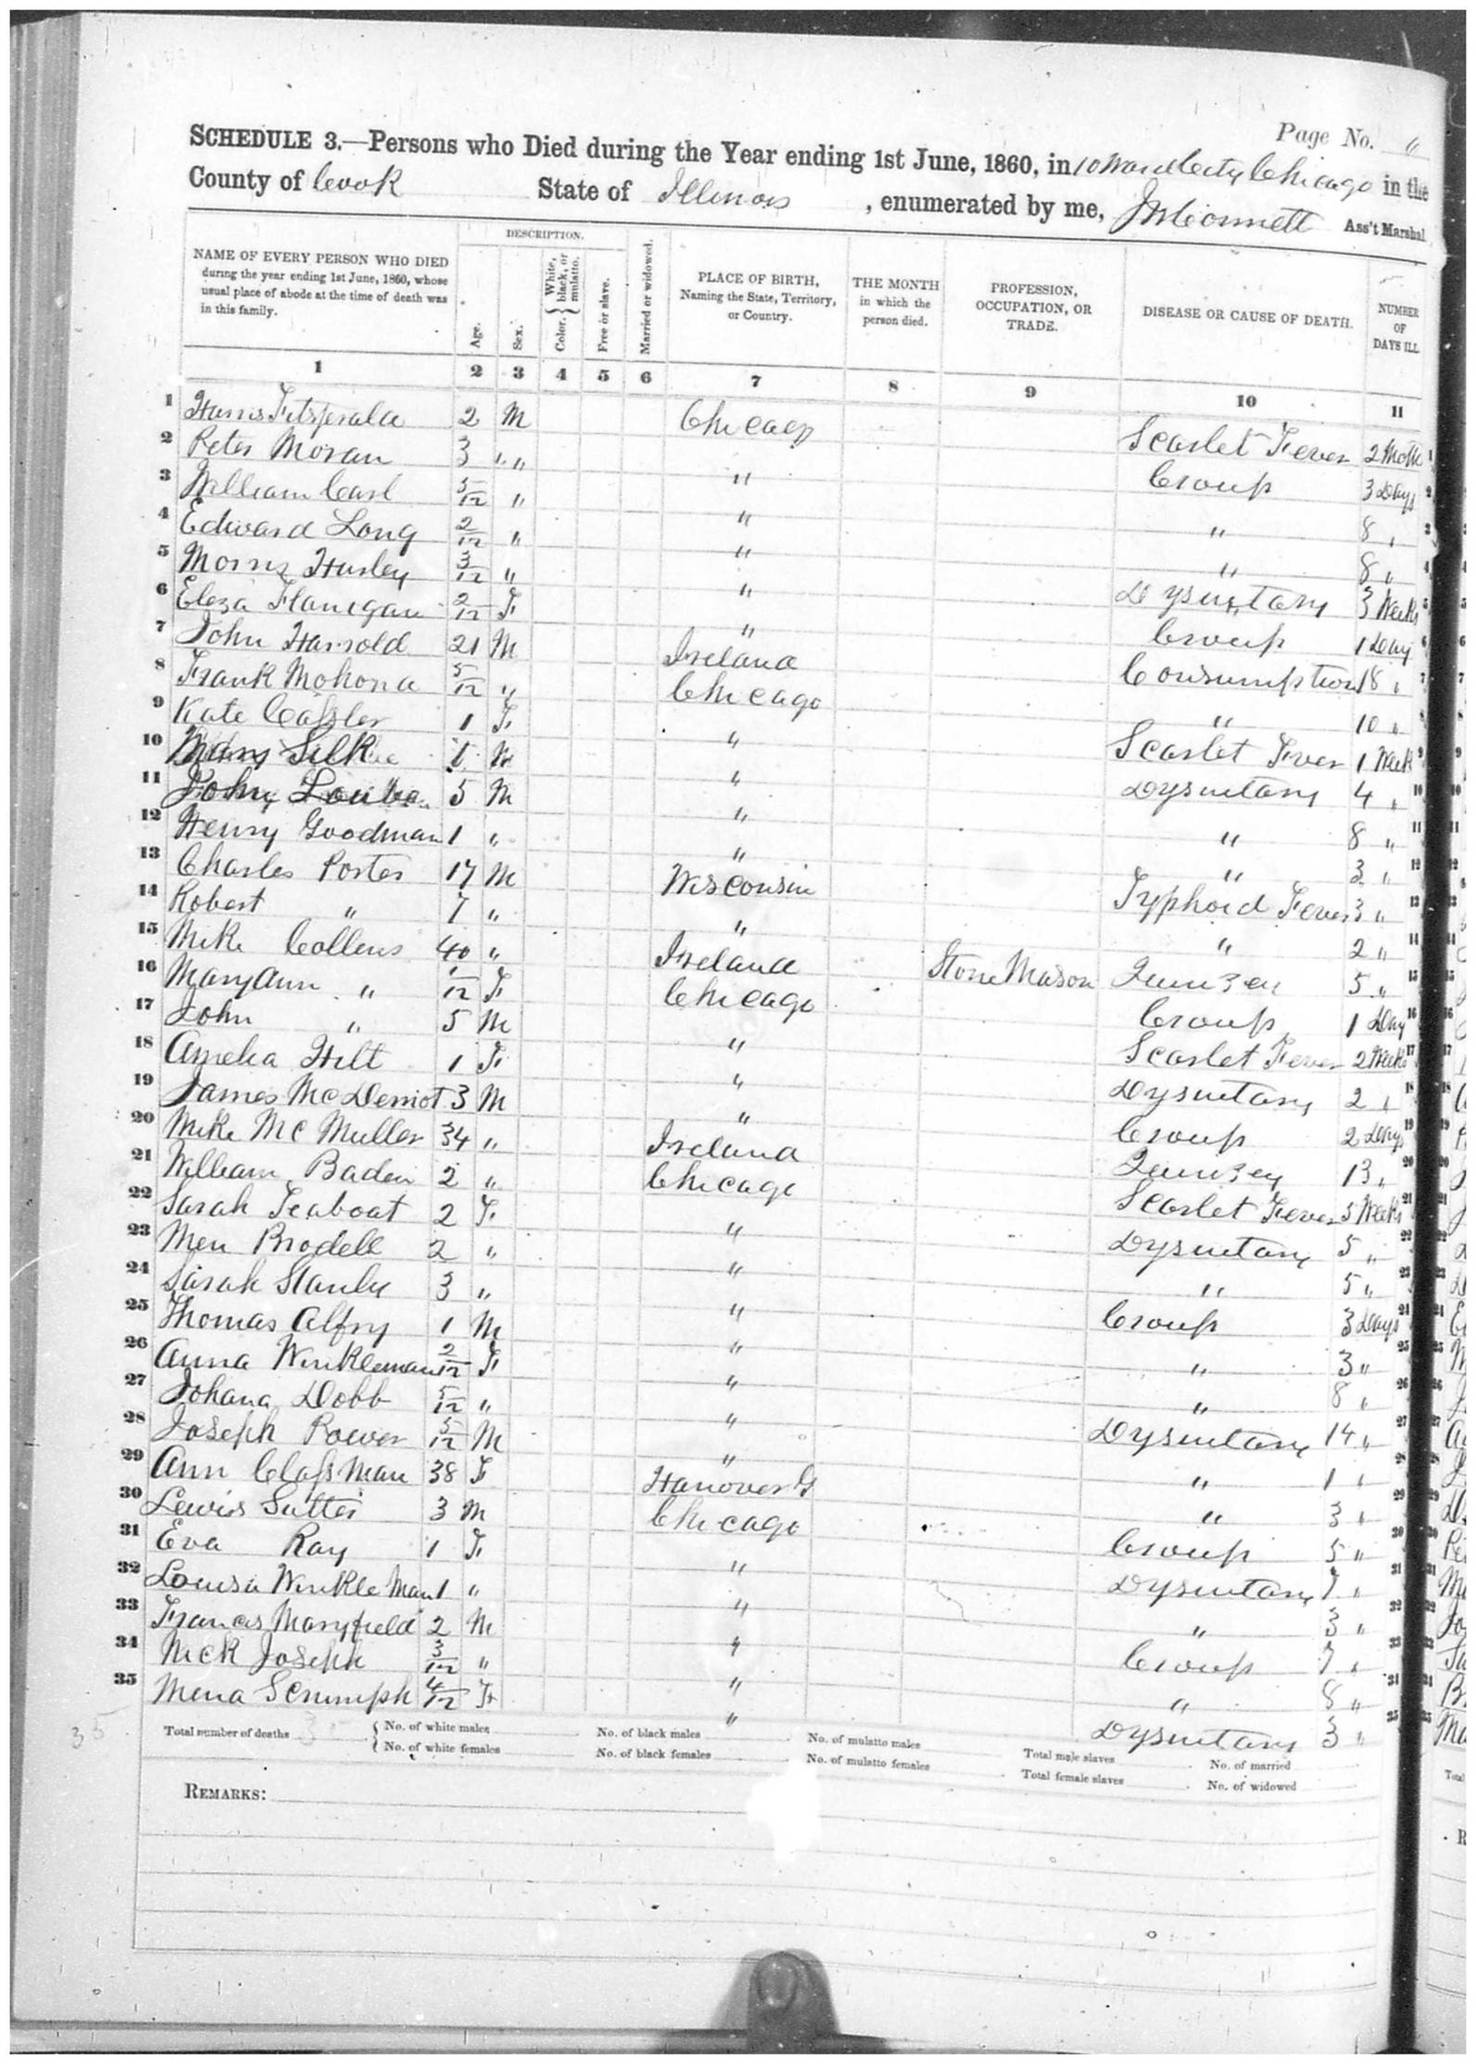 Page No. 6
SCHEDULE 3.—Persons who Died during the Year ending 1st June, 1860, in 10 Ward City Chicago in the
County of Cook State of Illinois, enumerated by me, Ass't Marshal
DESCRIPTION.
NAME OF EVERY PERSON WHO DIED during the year ending 1st June, 1860, whose usual place of abode at the time of death was in this family. Age. Sex. Color. { White, black, or mulatto. Free or slave. Married or widowed. PLACE OF BIRTH, Naming the State, Territory, or Country. THE MONTH in which the person died. PROFESSION, OCCUPATION, OR TRADE. DISEASE OR CAUSE OF DEATH. NUMBER OF DAYS ILL.
1 2 3 4 5 6 7 8 9 10 11
1 2 M Chicago Scarlet Fever 2 1
2 Peter Moran 3 " " " Croup 3 Days 2
3 William Carl 5/12 " " " 8 " 3
4 Edward Long 2/12 " " " 8 " 4
5 Morris Hurley 3/12 " " Dysentary 3 Weeks 5
6 Eleza Flanegan 2/12 F " Croup 1 Day 6
7 John Harrold 21 M Ireland Consumption 18 " 7
8 Frank Mohona 5/12 " Chicago " 10 " 8
9 Kate Cassler 1 F " Scarlet Fever 1 Week 9
10 Silk 1 " Dysentary 4 " 10
11 John 5 M " " 8 " 11
12 Henry Goodman 1 " " " 3 " 12
13 Charles Porter 17 M Wisconsin Typhoid Fever 3 " 13
14 Robert " 7 " " " 2 " 14
15 Mike Collens 40 " Ireland Stone Mason Quinzey 5 " 15
16 Mary Ann " 1/12 F Chicago Croup 1 Day 16
17 John " 5 M " Scarlet Fever 2 Weeks 17
18 Amelia Hilt 1 F " Dysentary 2 " 18
19 James McDermot 3 M " Croup 2 Days 19
20 Mike McMuller 34 " Ireland Quinzey 13 " 20
21 William Baden 2 " Chicago Scarlet Fever 3 Weeks 21
22 Sarah Teaboat 2 F " Dysentary 5 " 22
23 Men Brodell 2 " " " 5 " 23
24 Sarah Stanly 3 " " Croup 3 Days 24
25 Thomas Alfry 1 M " " 3 " 25
26 Anna Winkleman 2/12 F " " 8 " 26
27 Johana Dobb 5/12 " " Dysentary 14 " 27
28 Joseph Power 5/12 M " " 1 " 28
29 Ann Classman 38 F Hanover G " 3 " 29
30 Lewis Sutter 3 M Chicago Croup 5 " 30
31 Eva Ray 1 F " Dysentary 7 " 31
32 Louisa Winkle Man 1 " " " 3 " 32
33 Francis Maryfield 2 M " Croup 7 " 33
34 Nick Joseph 3/12 " " " 8 " 34
35 Mena Scrumph 4/12 F " Dysentary 3 " 35
35 Total number of deaths 35 { No. of white males No. of black males No. of mulatto males Total male slaves No. of married
No. of white females No. of black females No. of mulatto females Total female slaves No. of widowed
REMARKS: